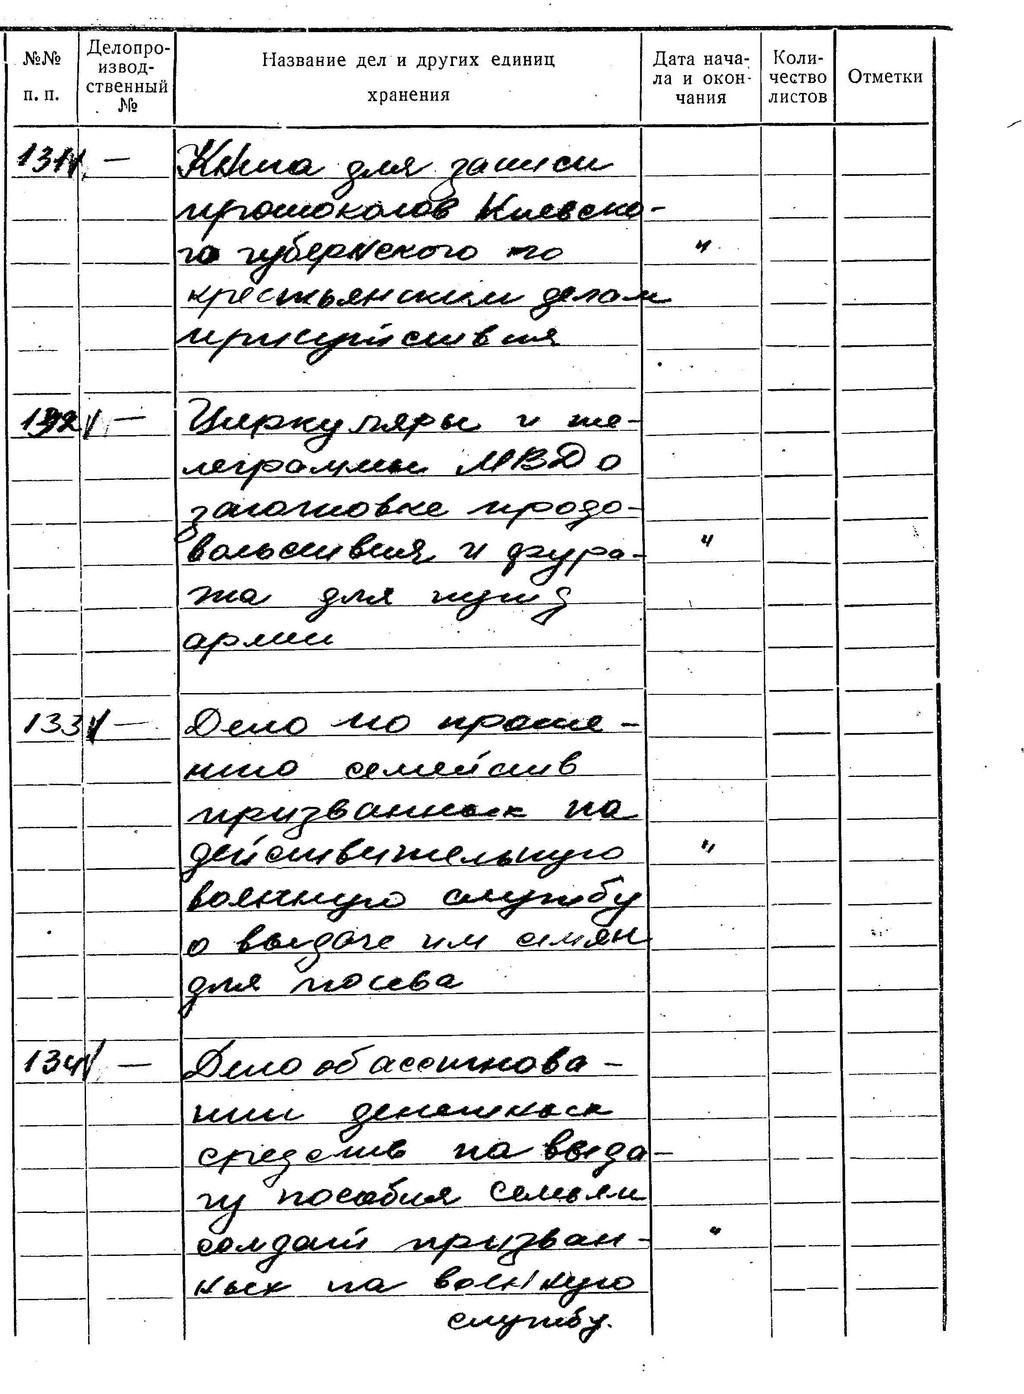 №№ п. п. Делопро-извод-ственный № Название дел и других единиц хранения Дата нача-ла и окон-чания Коли-чество листов Отметки
131 — Книга для записи
протоколов Киевско-
го губернского по "
крестьянским делам
присутствия
132 — Циркуляры и те-
леграммы МВД о
заготовке продо-
вольствия и фура- "
жа для нужд
армии
133 — Дело по проше-
нию семейств
призванных на
действительную "
военную службу
о выдаче им семян
для посева
134 — Дело об ассигнова-
нии денежных
средств на выда-
чу пособия семьям
солдат призван- "
ных на военную
службу.